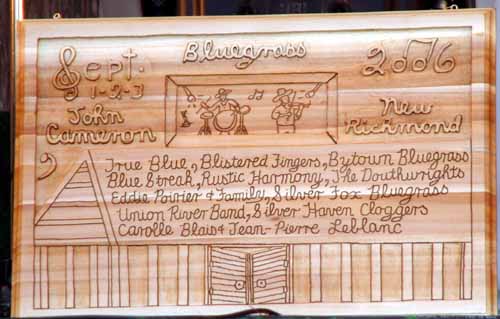 Sept. Bluegrass 2006
1-2-3
John New
Cameron Richmond
True Blue, Blistered Fingers, Bytown Bluegrass
Blue Streak, Rustic Harmony, The Douthwrights
Eddie Poirier & Family, Silver Fox Bluegrass
Union River Band, Silver Haven Cloggers
Carolle Blais & Jean-Pierre Leblanc